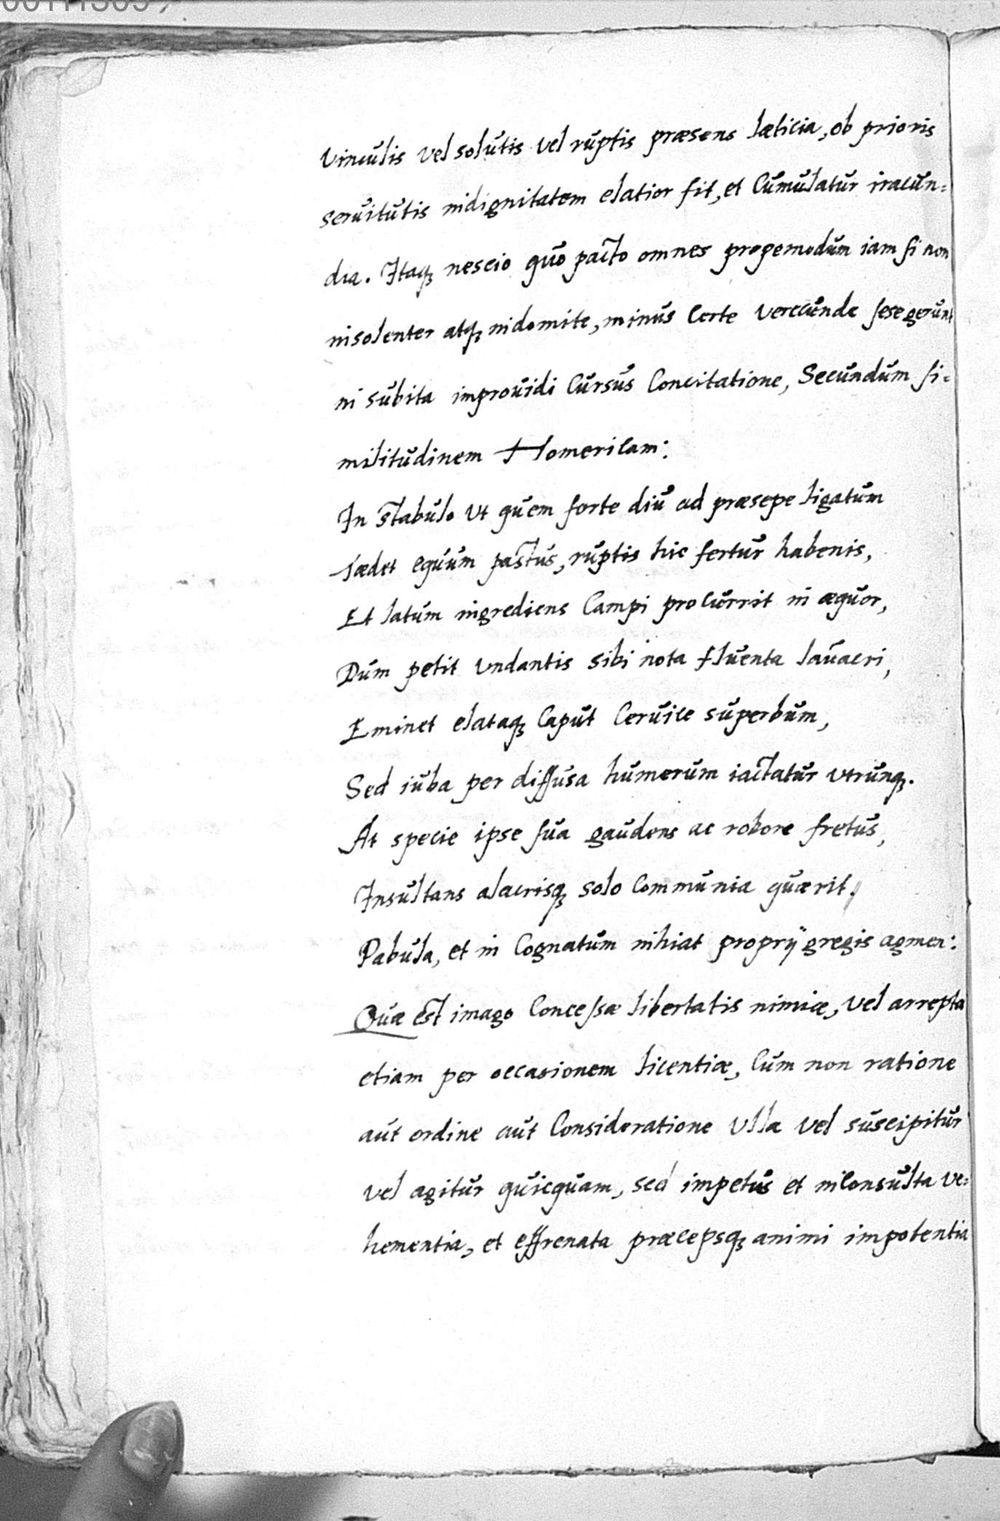 vinculis vel solutis vel ruptis præsens læticia, ob prioris
seruitutis indignitatem elatior fit, et cumulatur iracun=
dia. Itaq; nescio quo pacto omnes propemodum iam si non
insolenter atq; indomite, minus certe verecunde sese gerunt
in subita improuidi cursus concitatione, Secundum si=
militudinem Homericam:
In stabulo vt quem forte diu ad præsepe ligatum
Tædet equum pastus, ruptis hic fertur habenis,
Et latum ingrediens campi procurrit in æquor,
Dum petit vndantis sibi nota fluenta lauacri,
Eminet elataq; caput ceruice superbum,
Sed iuba per diffusa humerum iactatur vtrunq;.
At specie ipse sua gaudens ac robore fretus,
Insultans alacrisq; solo communia quærit,
Pabula, et in cognatum inhiat proprij gregis agmen:.
Quæ est imago concessæ libertatis nimiæ, vel arrepta
etiam per occasionem licentiæ, cum non ratione
aut ordine aut consideratione vlla vel suscipitur
vel agitur quicquam, sed impetus et inconsulta ve=
hementia, et effrenata præcepsq; animi impotentia